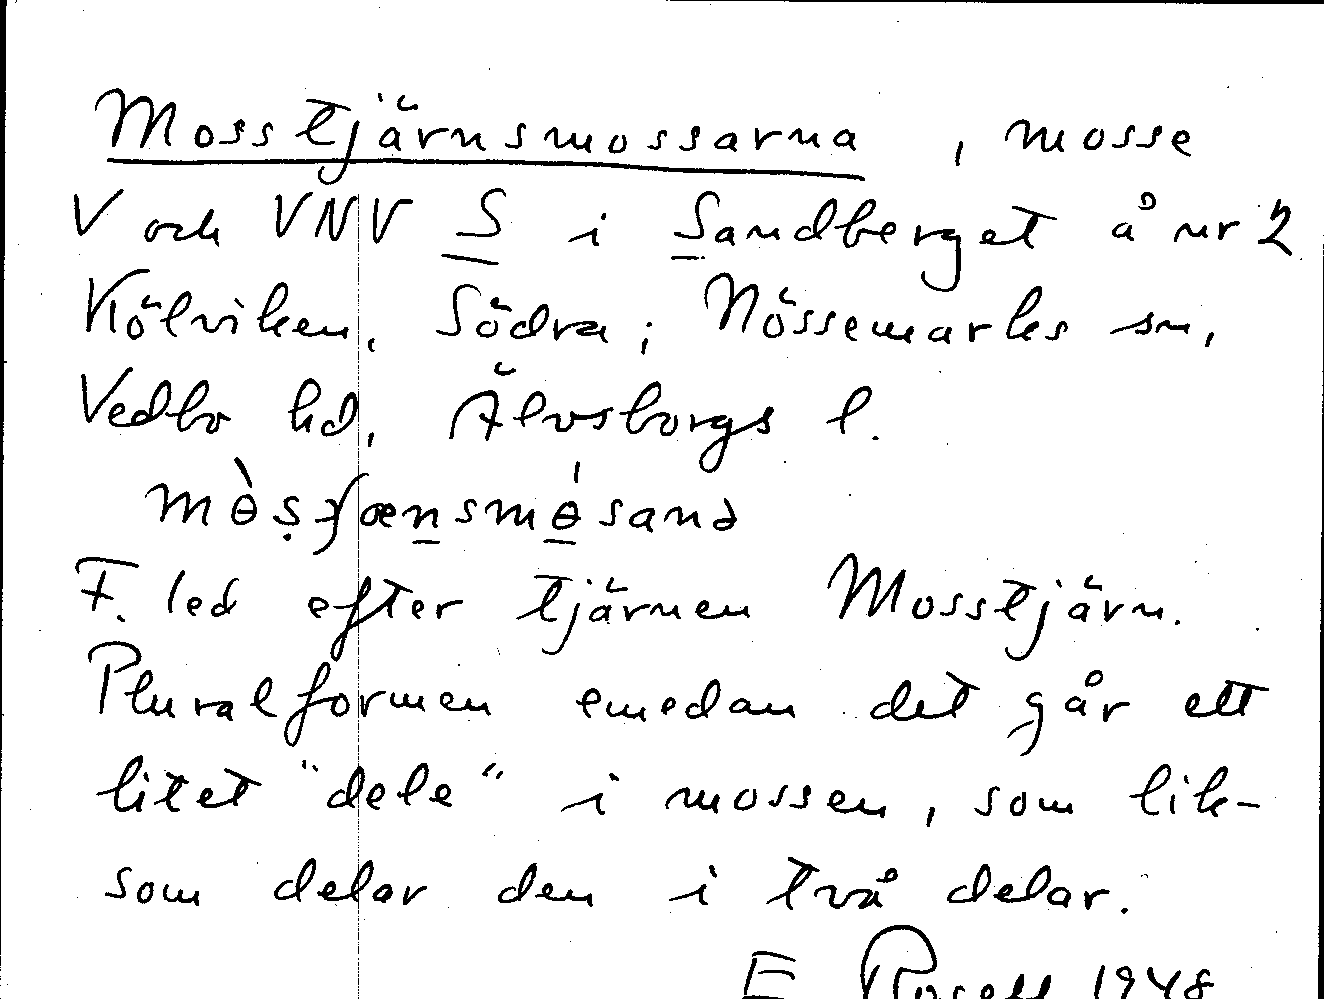 Mosstjärnsmossarna, mosse
V och VNV S i Sandberget å nr 2
Kölviken, Södra; Nössemarks sn,
Vedbo hd, Älvsborgs l.
F. led efter tjärnen Mosstjärn.
Pluralformen emedan det går ett
litet "dele" i mossen, som lik-
som delar den i två delar.
E Rosell 1948